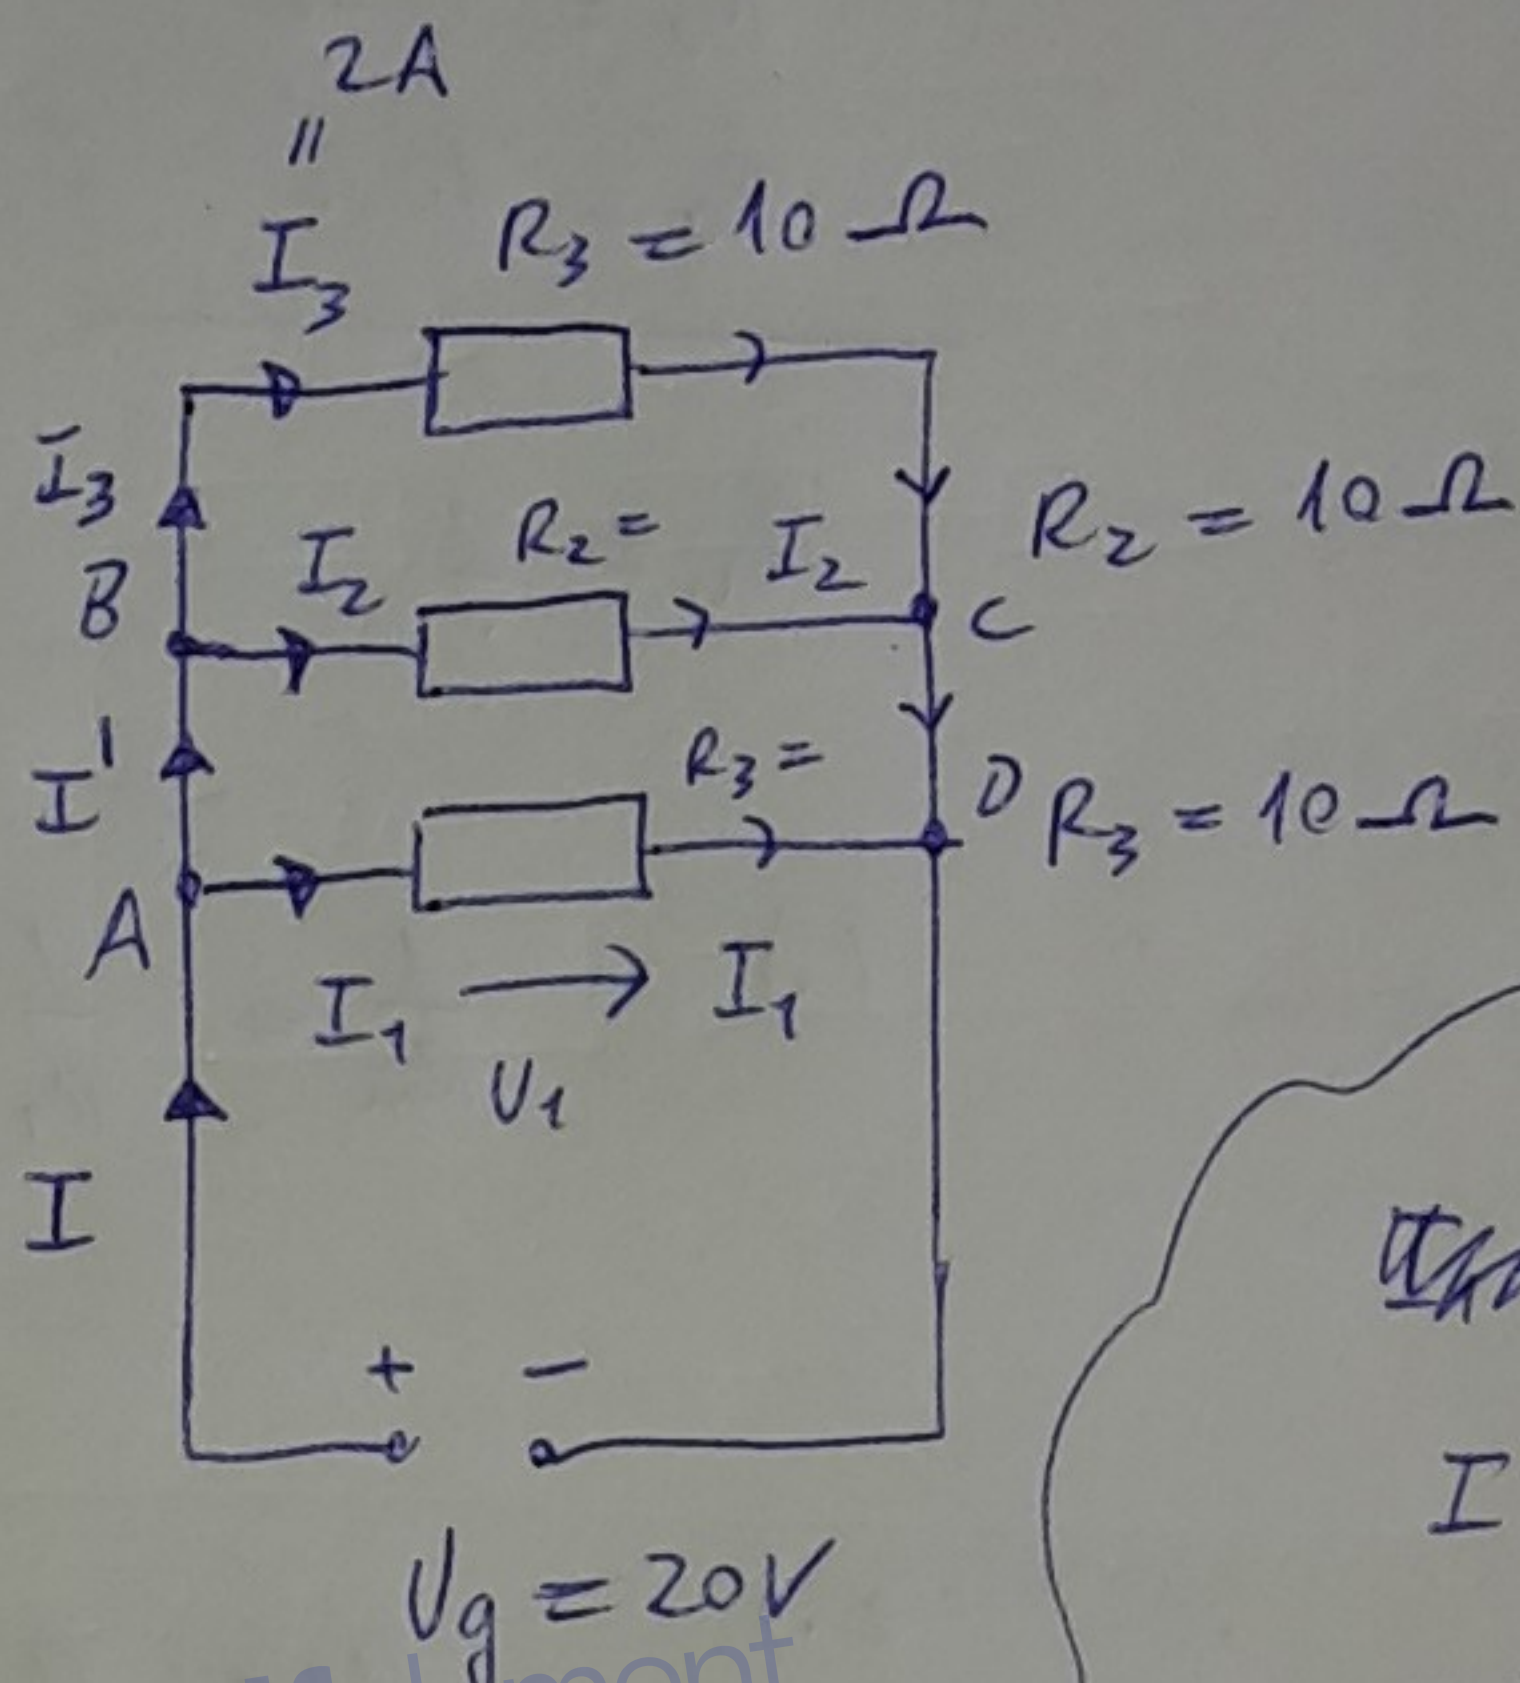 2A
=
I₃
R₃ = 10 Ω
I₃
R₂ =
I₂
I₂
R₂ = 10 Ω
B
C
I'
R₃ =
D
R₃ = 10 Ω
A
I₁
I₁
U₁
I
+ −
I
Ug = 20V